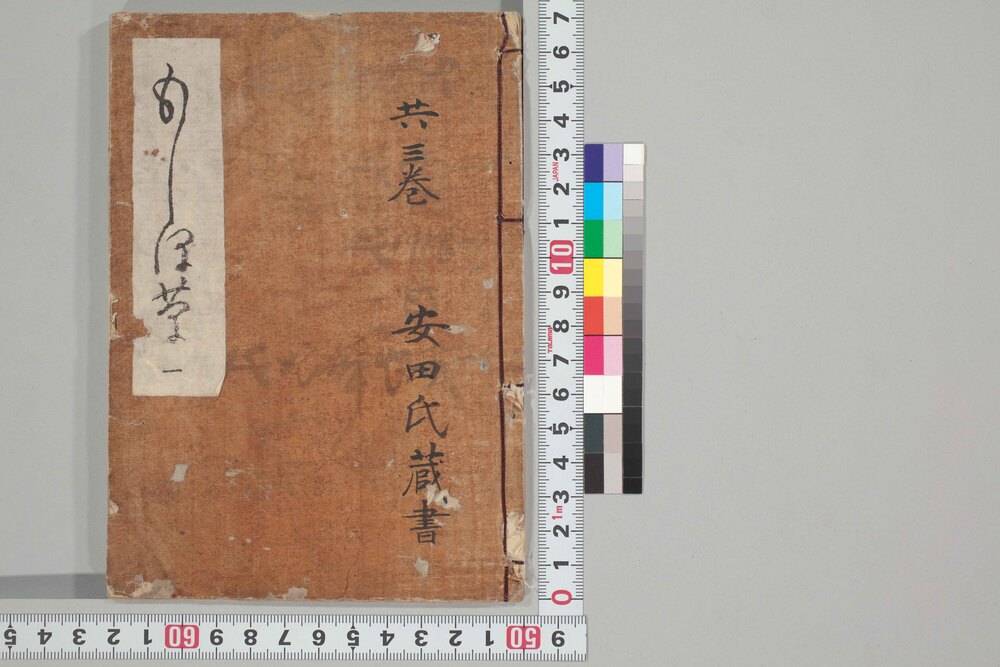 共三巻 安田氏蔵書
もしほ草 一
7 6 5 4 3 2 1 10 9 8 7 6 5 4 3 2 1 0
JAPAN
Tajima
1m
5 4 3 2 1 60 9 8 7 6 5 4 3 2 1 50 9